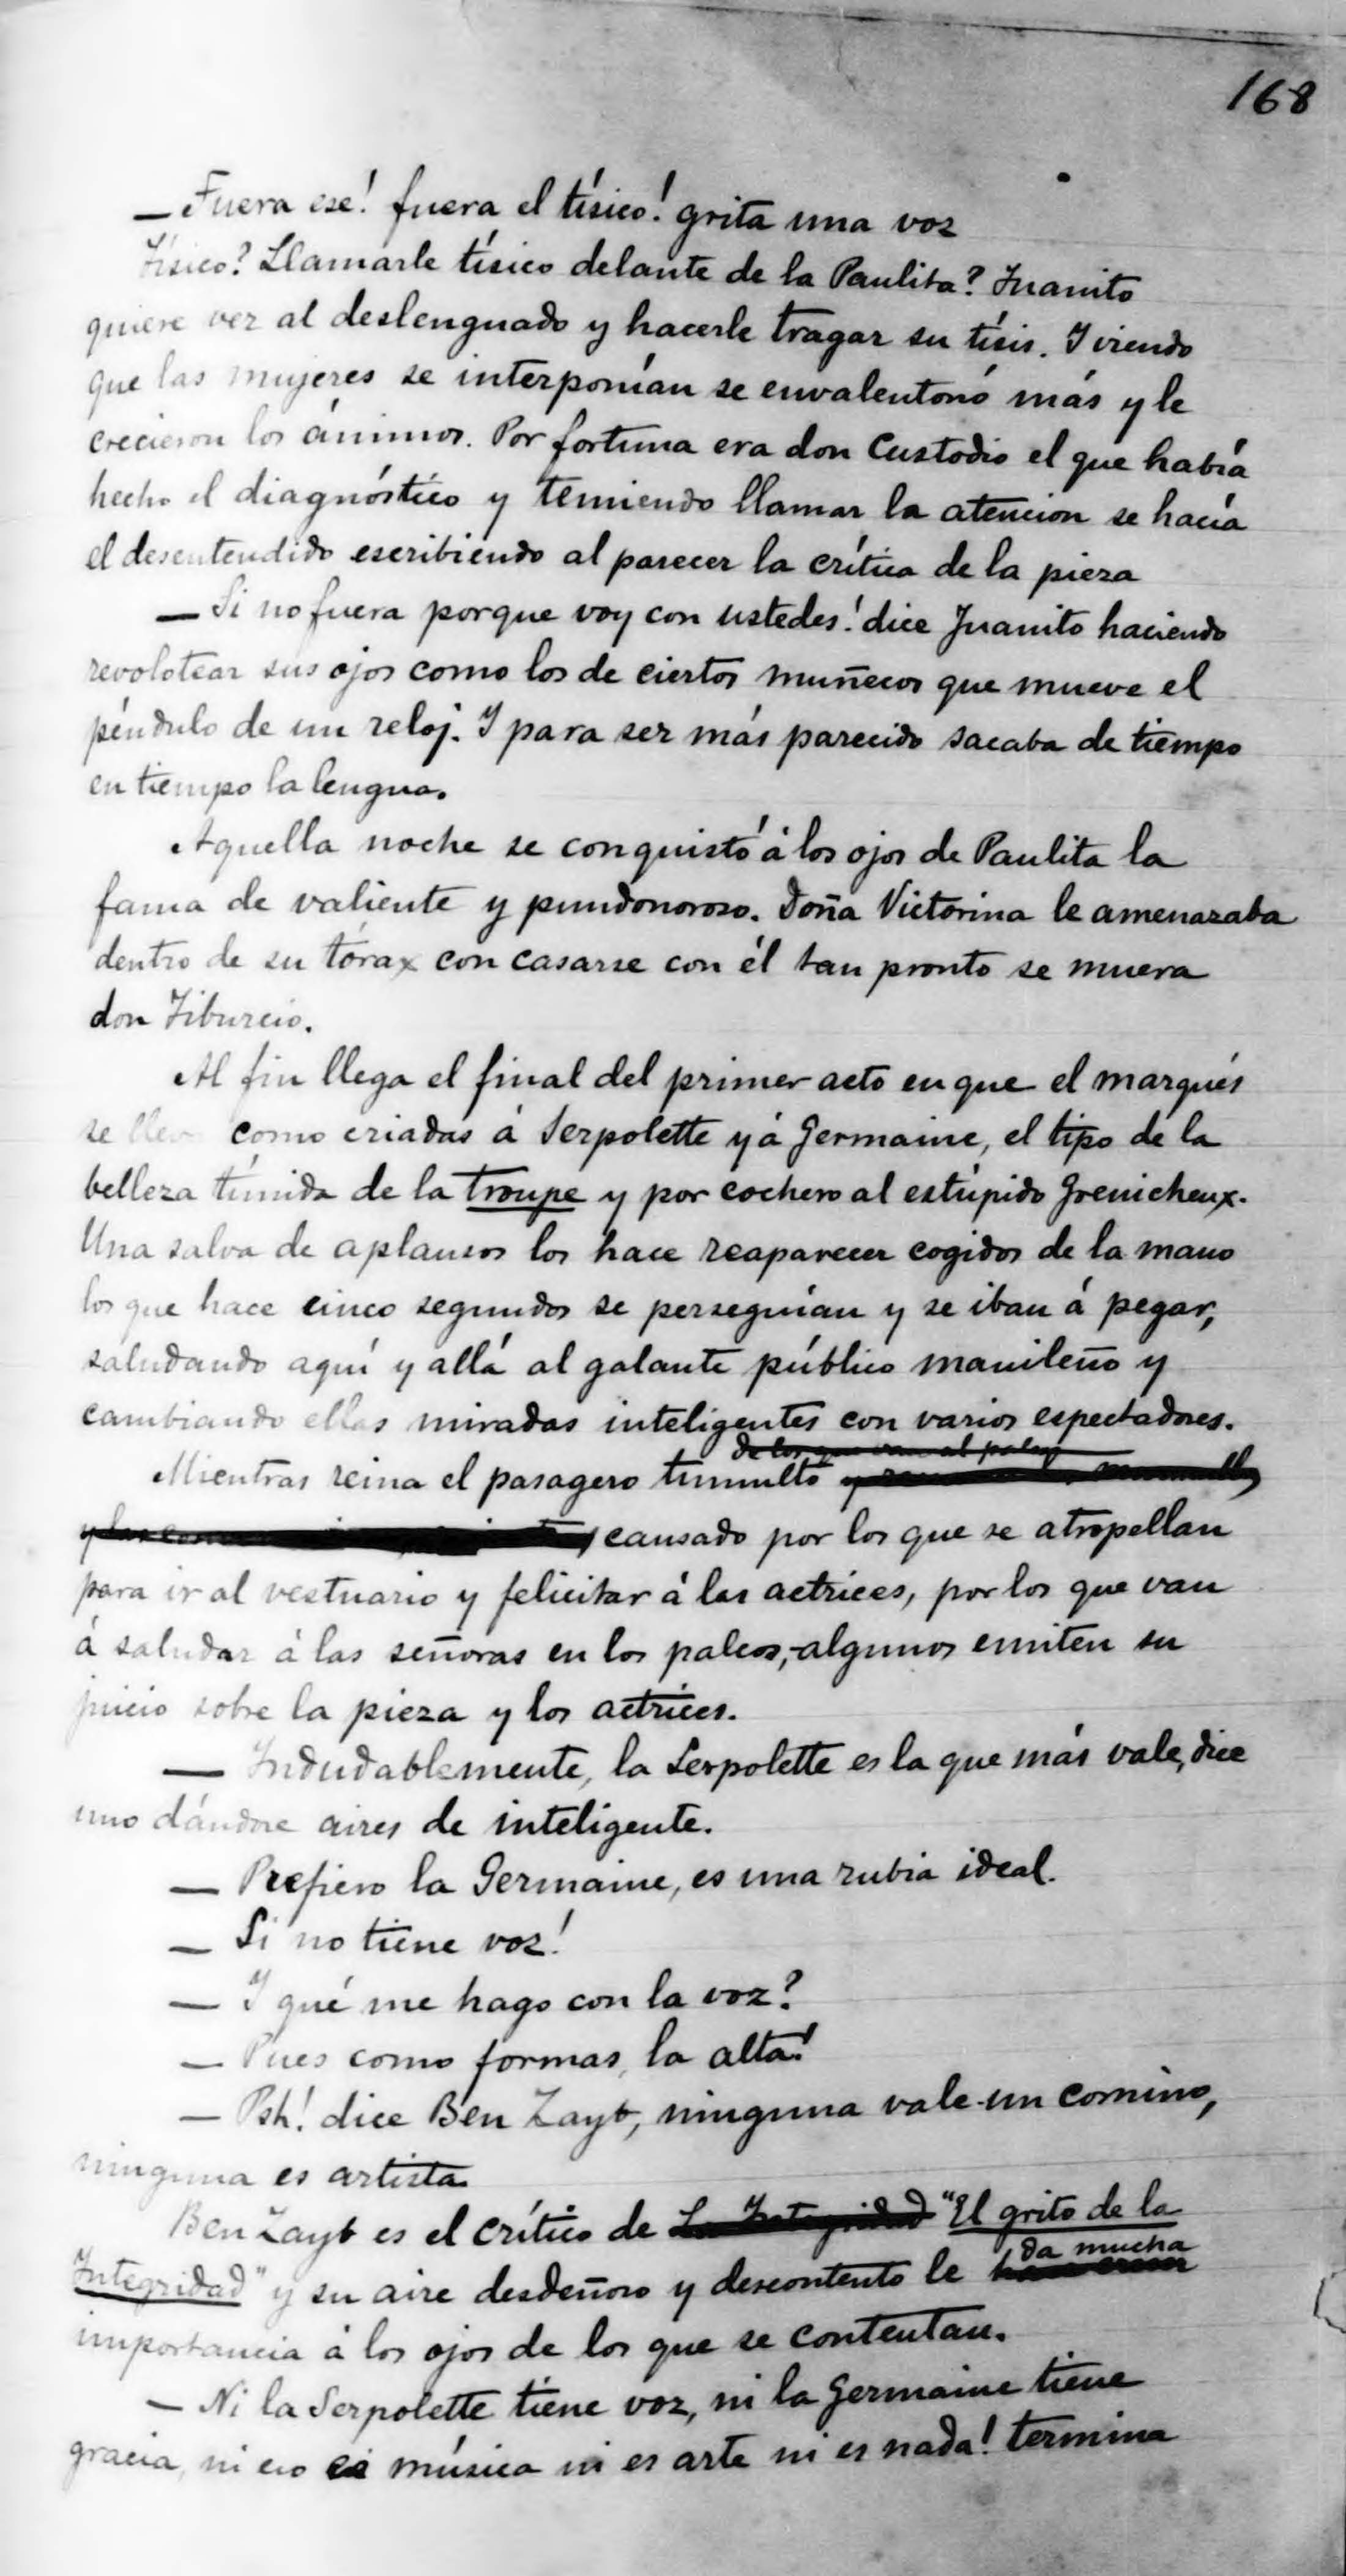 168
— Fuera ese! fuera el tísico! grita una voz
Tísico? Llamarle tísico delante de la Paulita? Juanito
quiere ver al deslenguado y hacerle tragar su tísis. I viendo
que las mujeres se interponían se envalentonó más y le
crecieron los ánimos. Por fortuna era don Custodio el que había
hecho el diagnóstico y temiendo llamar la atencion se hacía
el desentendido escribiendo al parecer la crítica de la pieza
— Si no fuera porque voy con ustedes! dice Juanito haciendo
revolotear sus ojos como los de ciertos muñecos que mueve el
péndulo de un reloj. I para ser más parecido sacaba de tiempo
en tiempo la lengua.
Aquella noche se conquistó á los ojos de Paulita la
fama de valiente y pundonoroso. Doña Victorina le amenazaba
dentro de su tórax con casarse con él tan pronto se muera
don Tiburcio.
Al fin llega el final del primer acto en que el marqués
se como criadas á Serpolette y á Germaine, el tipo de la
belleza tímida de la troupe y por cochero al estúpido Grenicheux.
Una salva de aplausos los hace reaparecer cogidos de la mano
los que hace cinco segundos se perseguían y se iban á pegar,
saludando aquí y allá al galante público manileño y
cambiando ellas miradas inteligentes con varios espectadores.
de los que van al palco
Mientras reina el pasagero tumulto
causado por los que se atropellan
para ir al vestuario y felicitar á las actrices, por los que van
á saludar á las señoras en los palcos,-algunos emiten su
juicio sobre la pieza y los actrices.
— Indudablemente, la Serpolette es la que más vale, dice
uno dándose aires de inteligente.
— Prefiero la Germaine, es una rubia ideal.
— Si no tiene voz!
— I qué me hago con la voz?
— Pues como formas, la alta!
— Psh! dice Ben Zayb, ninguna vale un comino,
ninguna es artista
Ben Zayb es el crítico de La Integridad "El grito de la
da mucha
Integridad" y su aire desdeñoso y descontento le
importancia á los ojos de los que se contentan.
— Ni la Serpolette tiene voz, ni la Germaine tiene
gracia, ni eso es música ni es arte ni es nada! termina